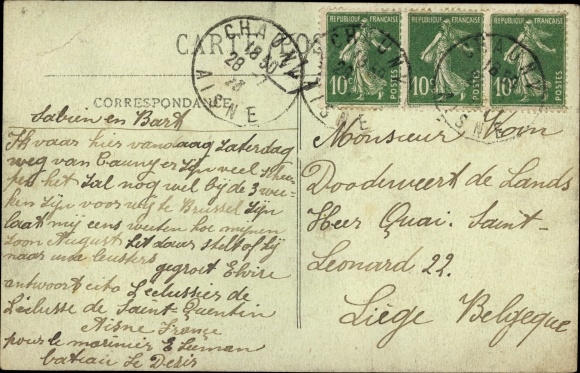 CARTE POSTALE
CORRESPONDANCE
CHAUNY
18 30
28
AISNE
REPUBLIQUE FRANÇAISE
10c
POSTES
REPUBLIQUE FRANÇAISE
10c
POSTES
REPUBLIQUE FRANÇAISE
10c
POSTES
Sabien en Bart
Ik vaar hier vandaag Zaterdag
weg van Cauny er zijn veel sche
pen het zal nog wel bij de 3 wee
ken zijn voor weg te Brussel zijn
laat mij eens weeten hoe mijnen
zoon August het daar stelt of hij
naar
gegroet Elvire
antwoort cito L'eclussier de
L'éclusse de Saint-Quentin
Aisne France
pour le marinier E
bateau Le Desir
Monsieur Kom
Doodeweert de Lands
Heer Quai. Saint-
Leonard 22.
Liège Belgeque